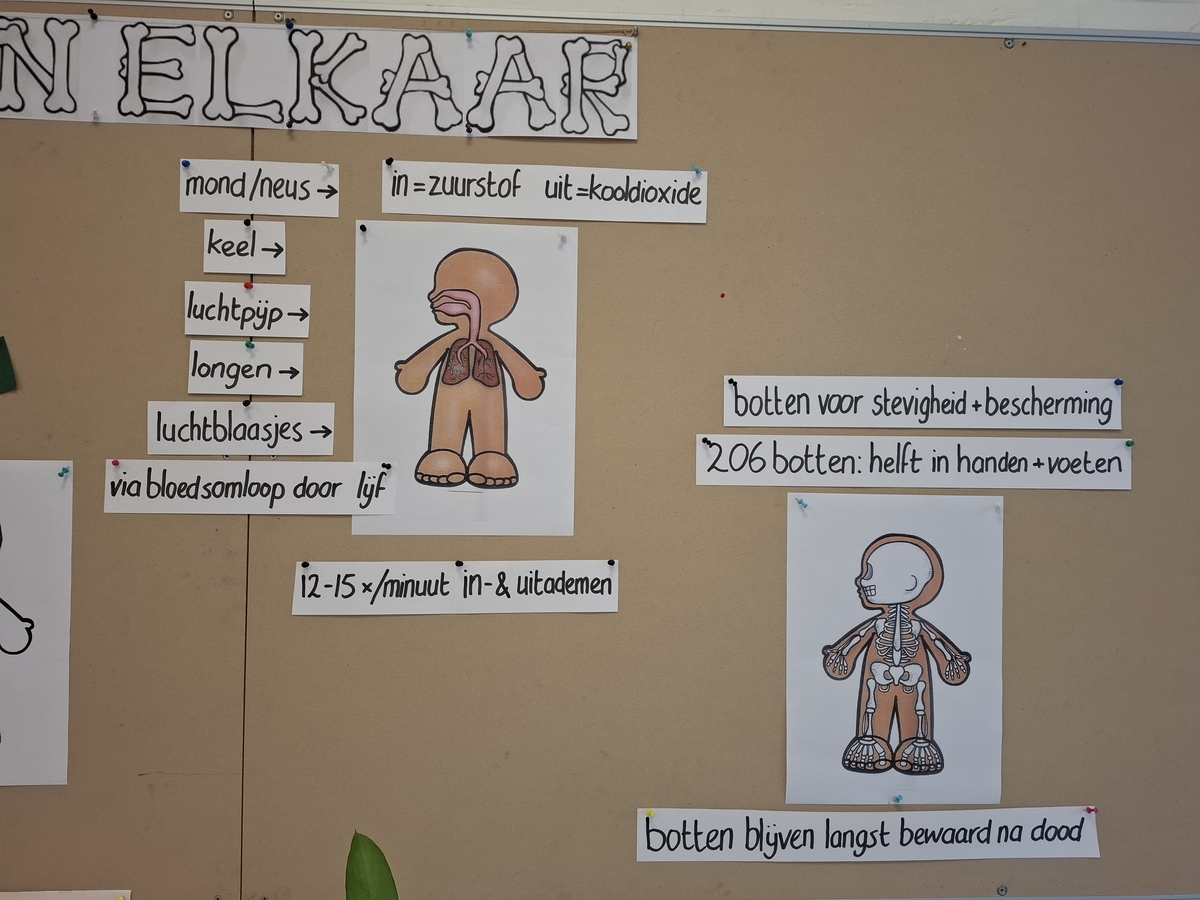 N ELKAAR
mond/neus →
in=zuurstof uit=kooldioxide
keel →
luchtpijp →
longen →
luchtblaasjes →
via bloedsomloop door lijf
12-15 x/minuut in- & uitademen
botten voor stevigheid + bescherming
206 botten: helft in handen + voeten
botten blijven langst bewaard na dood